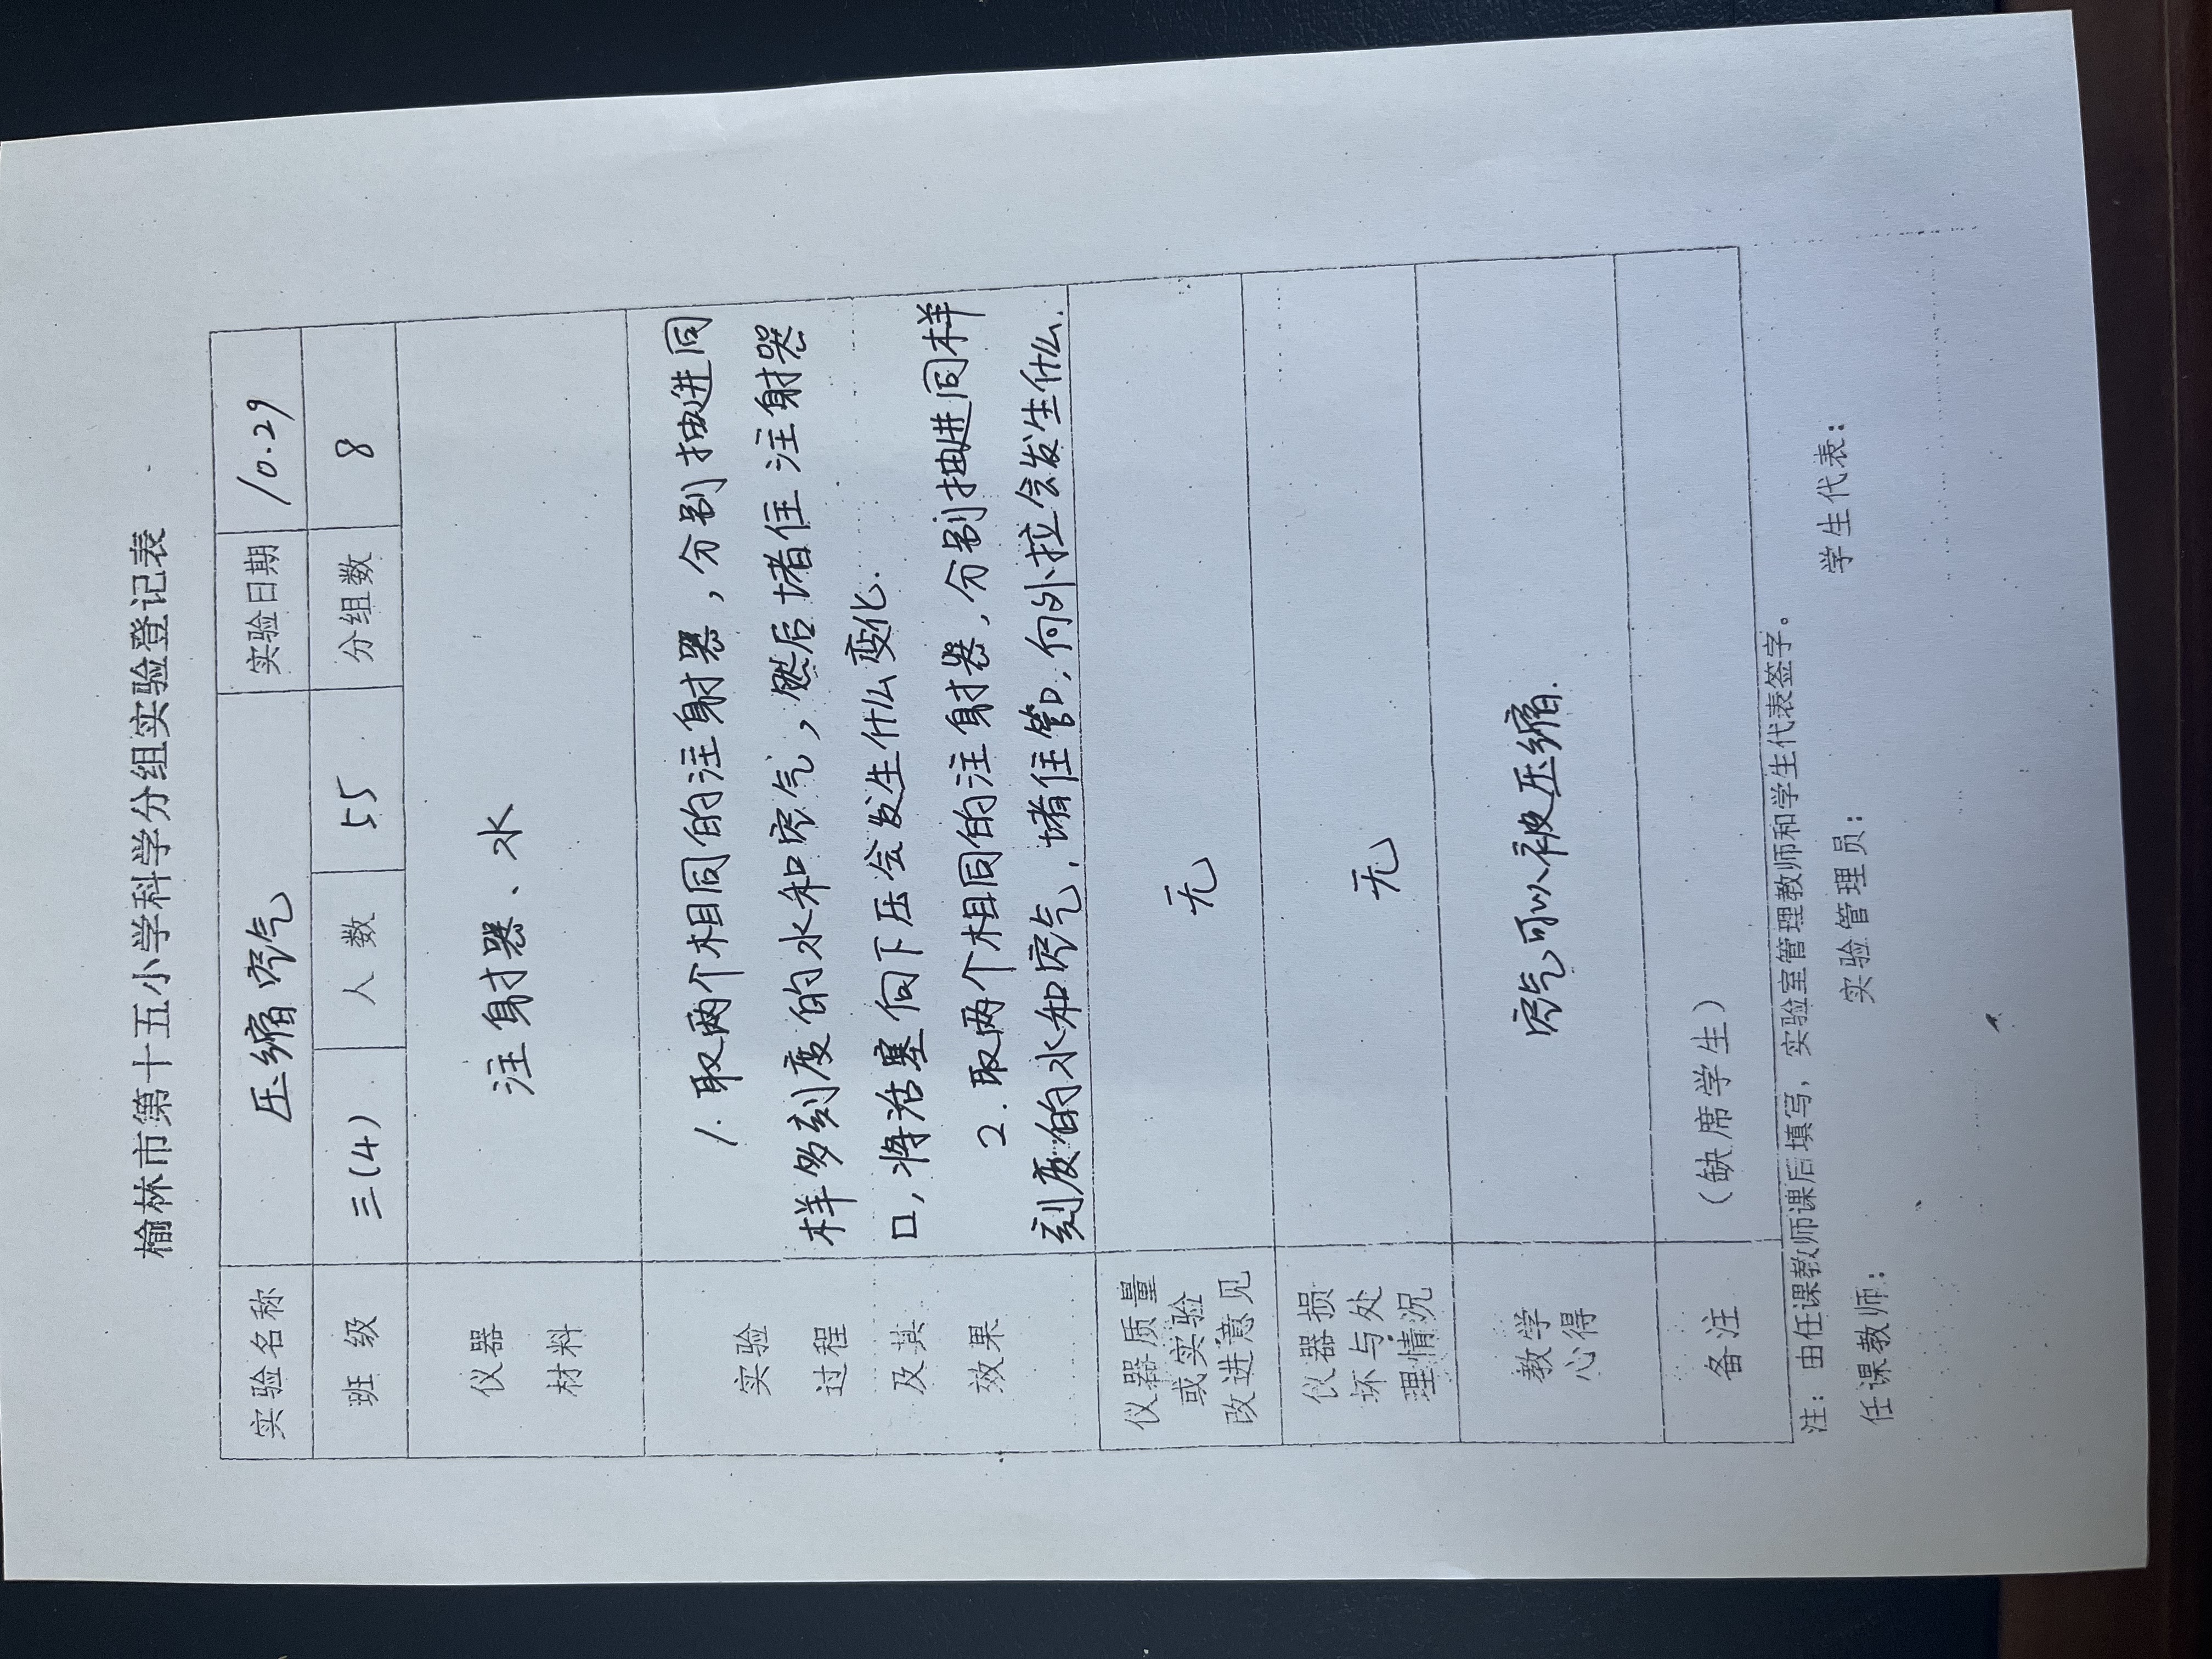 榆林市第十五小学科学分组实验登记表
实验名称 压缩空气 实验日期 10.29
班 级 三(4) 人 数 55 分组数 8
仪器
材料
注射器、水
实验
过程
及其
效果
1. 取两个相同的注射器，分别抽进同
样多刻度的水和空气，然后堵住注射器
口，将活塞向下压会发生什么变化.
2. 取两个相同的注射器，分别抽进同样
刻度的水和空气，堵住管口，向外拉会发生什么.
仪器质量
或实验
改进意见
无
仪器损
坏与处
理情况
无
教学
心得
空气可以被压缩.
备注
（缺席学生）
注：由任课教师课后填写，实验室管理教师和学生代表签字。
任课教师： 实验管理员： 学生代表：